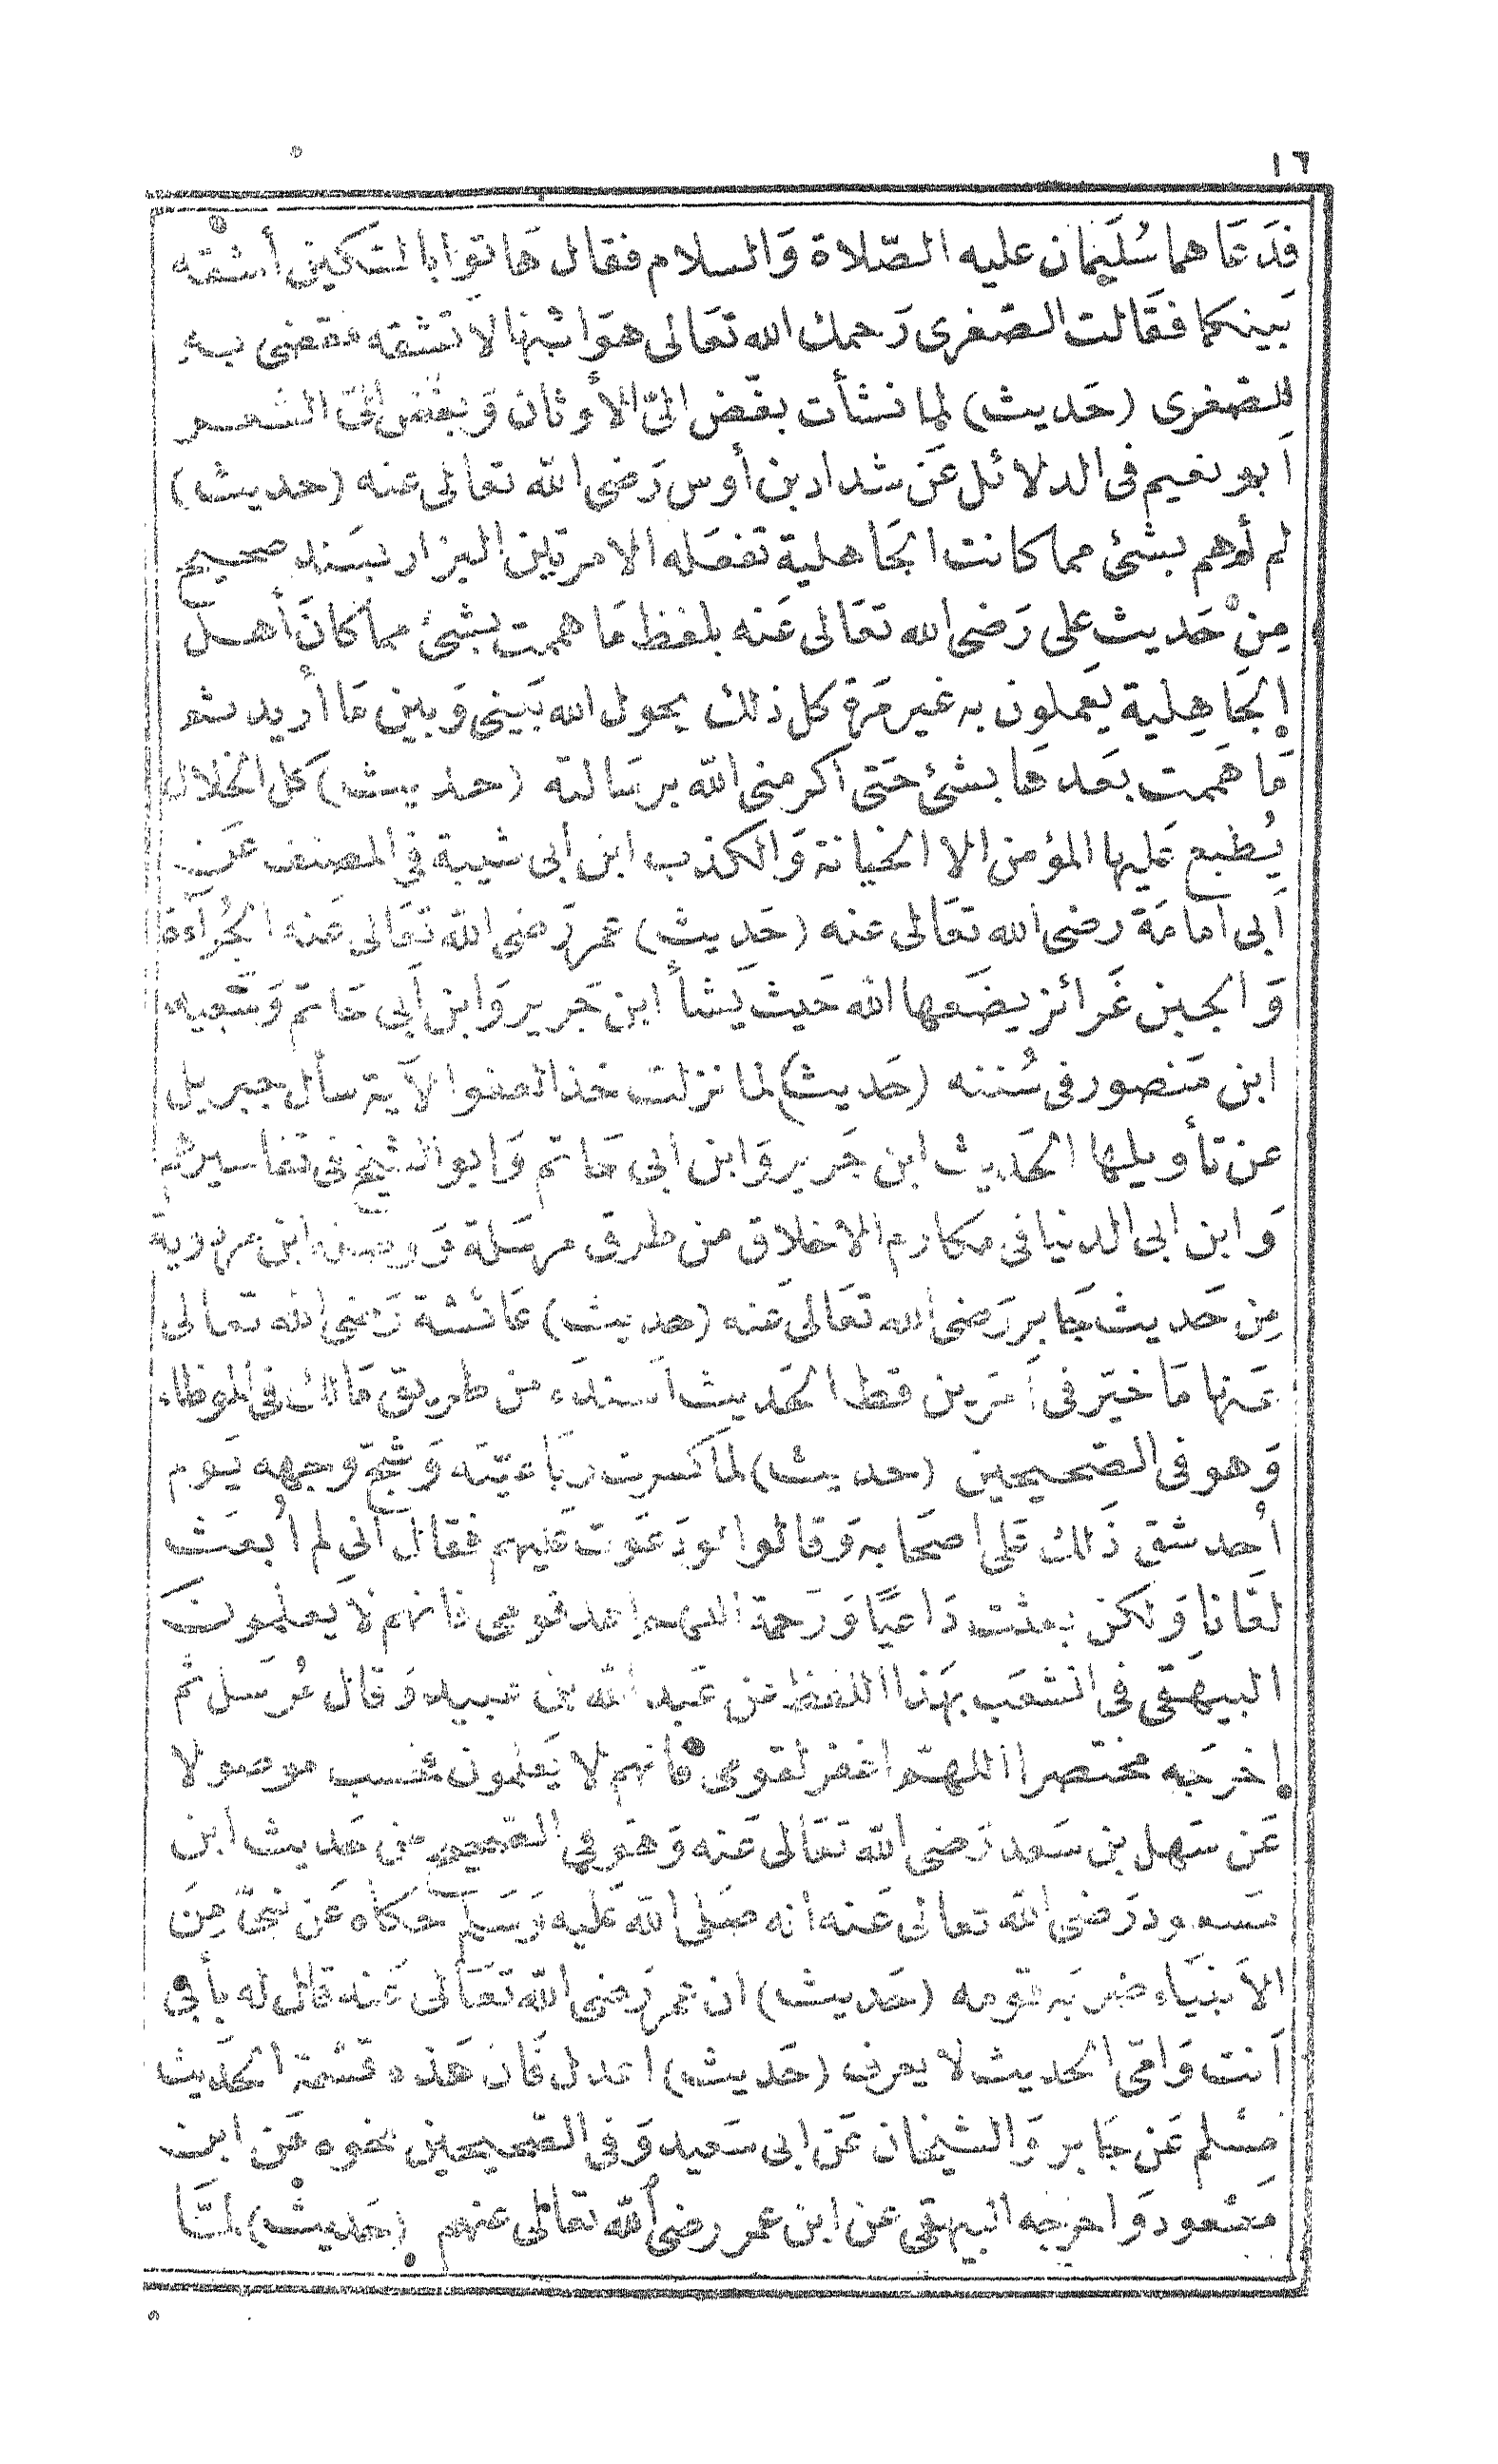 ١٦
فدَعَاهما سُلَيمان عليه الصّلاة وَالسلام فقال هَاتوا بالسَكين أشْقه
بَينكما فقَالت الصّغرى رَحمك الله تعَالى هوَ ابْنها لاَ تشقه فقضى بهِ
للصّغرى (حَديث) لما نشأت بغّض الىّ الأوثان وَبغّض الىّ الشعر
أبو نعيم فى الدلائل عَن شداد بن أوس رَضى الله تعالى عنه (حديث)
لم أهم بشئ مما كانت الجَاهلية تفعَله الا مرتين البزار بسَند صحيح
مِنْ حَديث على رَضى الله تعَالى عَنه بلفظ مَا هممت بشئ مما كانَ أهل
الجَاهِلية يَعملون به غير مَرة كل ذلك يحول الله بَينى وَبين مَا أريد ثم
مَا هَممت بَعدهَا بشئ حَتى أكرمنى الله برسَالته (حديث) كل الخلال
يُطبع عَليها المؤمن الا الخيانة وَالكذب ابن أبى شيبة في المصنف عَن
أبى أمامَة رضى الله تعَالى عنه (حَديث) عمر رَضى الله تعَالى عَنه الجُرآءة
وَالجبن غَرائز يضَعها الله حَيث يَشأ ابن جَرير وَابن أبى حَاتم وَسَعيد
ابن مَنصور فى سُننه (حَديث) لما نزلت خذ العفو الآية سأل جبريل
عن تأويلها الحَديث ابن جَرير وَابن ابى حَاتم وَابو الشيخ فى تفاسيرهم
وَابن ابى الدنيا فى مكارم الاخلاق من طرق مرسَلة وَوصله ابن مردوية
مِن حَديث جَابر رَضى الله تعَالى عَنه (حديث) عَائشة رَضى الله تعالى
عَنها مَا خيّر فى أمرَين قط الحَديث أسندَه من طريق مَالك فى الموطاء
وَهو فى الصّحيحين (حديث) لما كسرت رَبَاعيّته وَشجّ وَجهه يَوم
أحُد شق ذَلك عَلى اصحَابه وَقالوا لو دعَوت عَليهم فقال أنى لم أُبعَث
لعّانا وَلكن بعثت دَاعيًا وَرَحمة اللهم اهد قومى فانهم لا يعلمونَ
البيهَقى فى الشعَب بهَذا اللفظ عن عَبد الله بن عبيد وَقال مُرسَل ثم
اخرَجه مختصرا اللهمّ اغفر لقومى فانهم لا يَعلمون فحسب موصولا
عَن سَهل بن سَعد رَضى الله تعَالى عَنه وَهوَ فى الصّحيح من حَديث ابن
مَسعود رَضى الله تعالى عَنه انه صَلى الله عَليه وَسَلم حكاه عَن نبىّ مِنَ
الأنبيَاء ضرَبه قومه (حَديث) ان عمر رَضى الله تعَالى عَنه قال له بأبى
أنت وَامّى الحديث لا يعرف (حَديث) اعدل فَان هَذه قسْمة الحَديث
مسْلم عَن جَابر وَالشيخان عَن ابى سَعيد وَفى الصّحيحين نحوه عَن ابن
مسْعود وَاخرَجه البيهقى عَن ابن عمر رضى الله تعالى عنهم (حَديث) لمّا